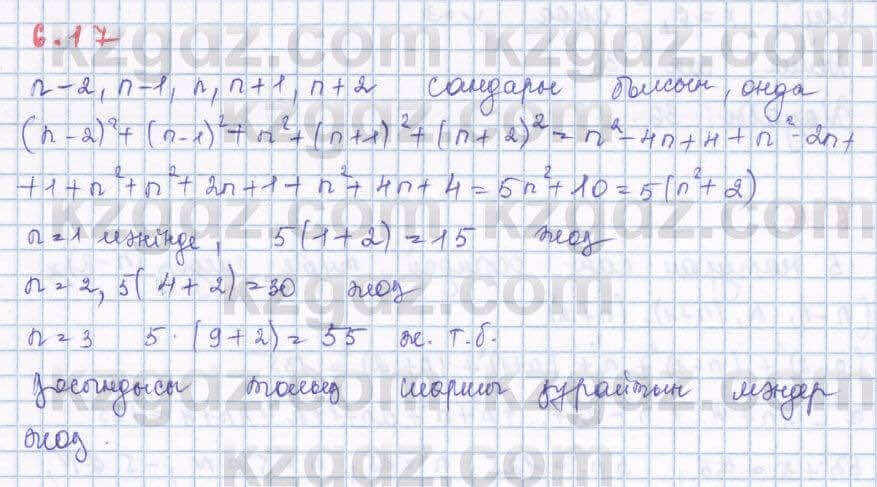 6.17
n-2, n-1, n, n+1, n+2 сандары болсын, онда
(n-2)²+(n-1)²+n²+(n+1)²+(n+2)²=n²-4n+4+n²-2n+
+1+n²+n²+2n+1+n²+4n+4=5n²+10=5(n²+2)
n=1 мәнінде, 5(1+2)=15 жоқ
n=2, 5(4+2)=30 жоқ
n=3 5·(9+2)=55 ж.т.б.
Қосындысы толық шаршы құрайтын мәндер
жоқ.
kzgdz.com